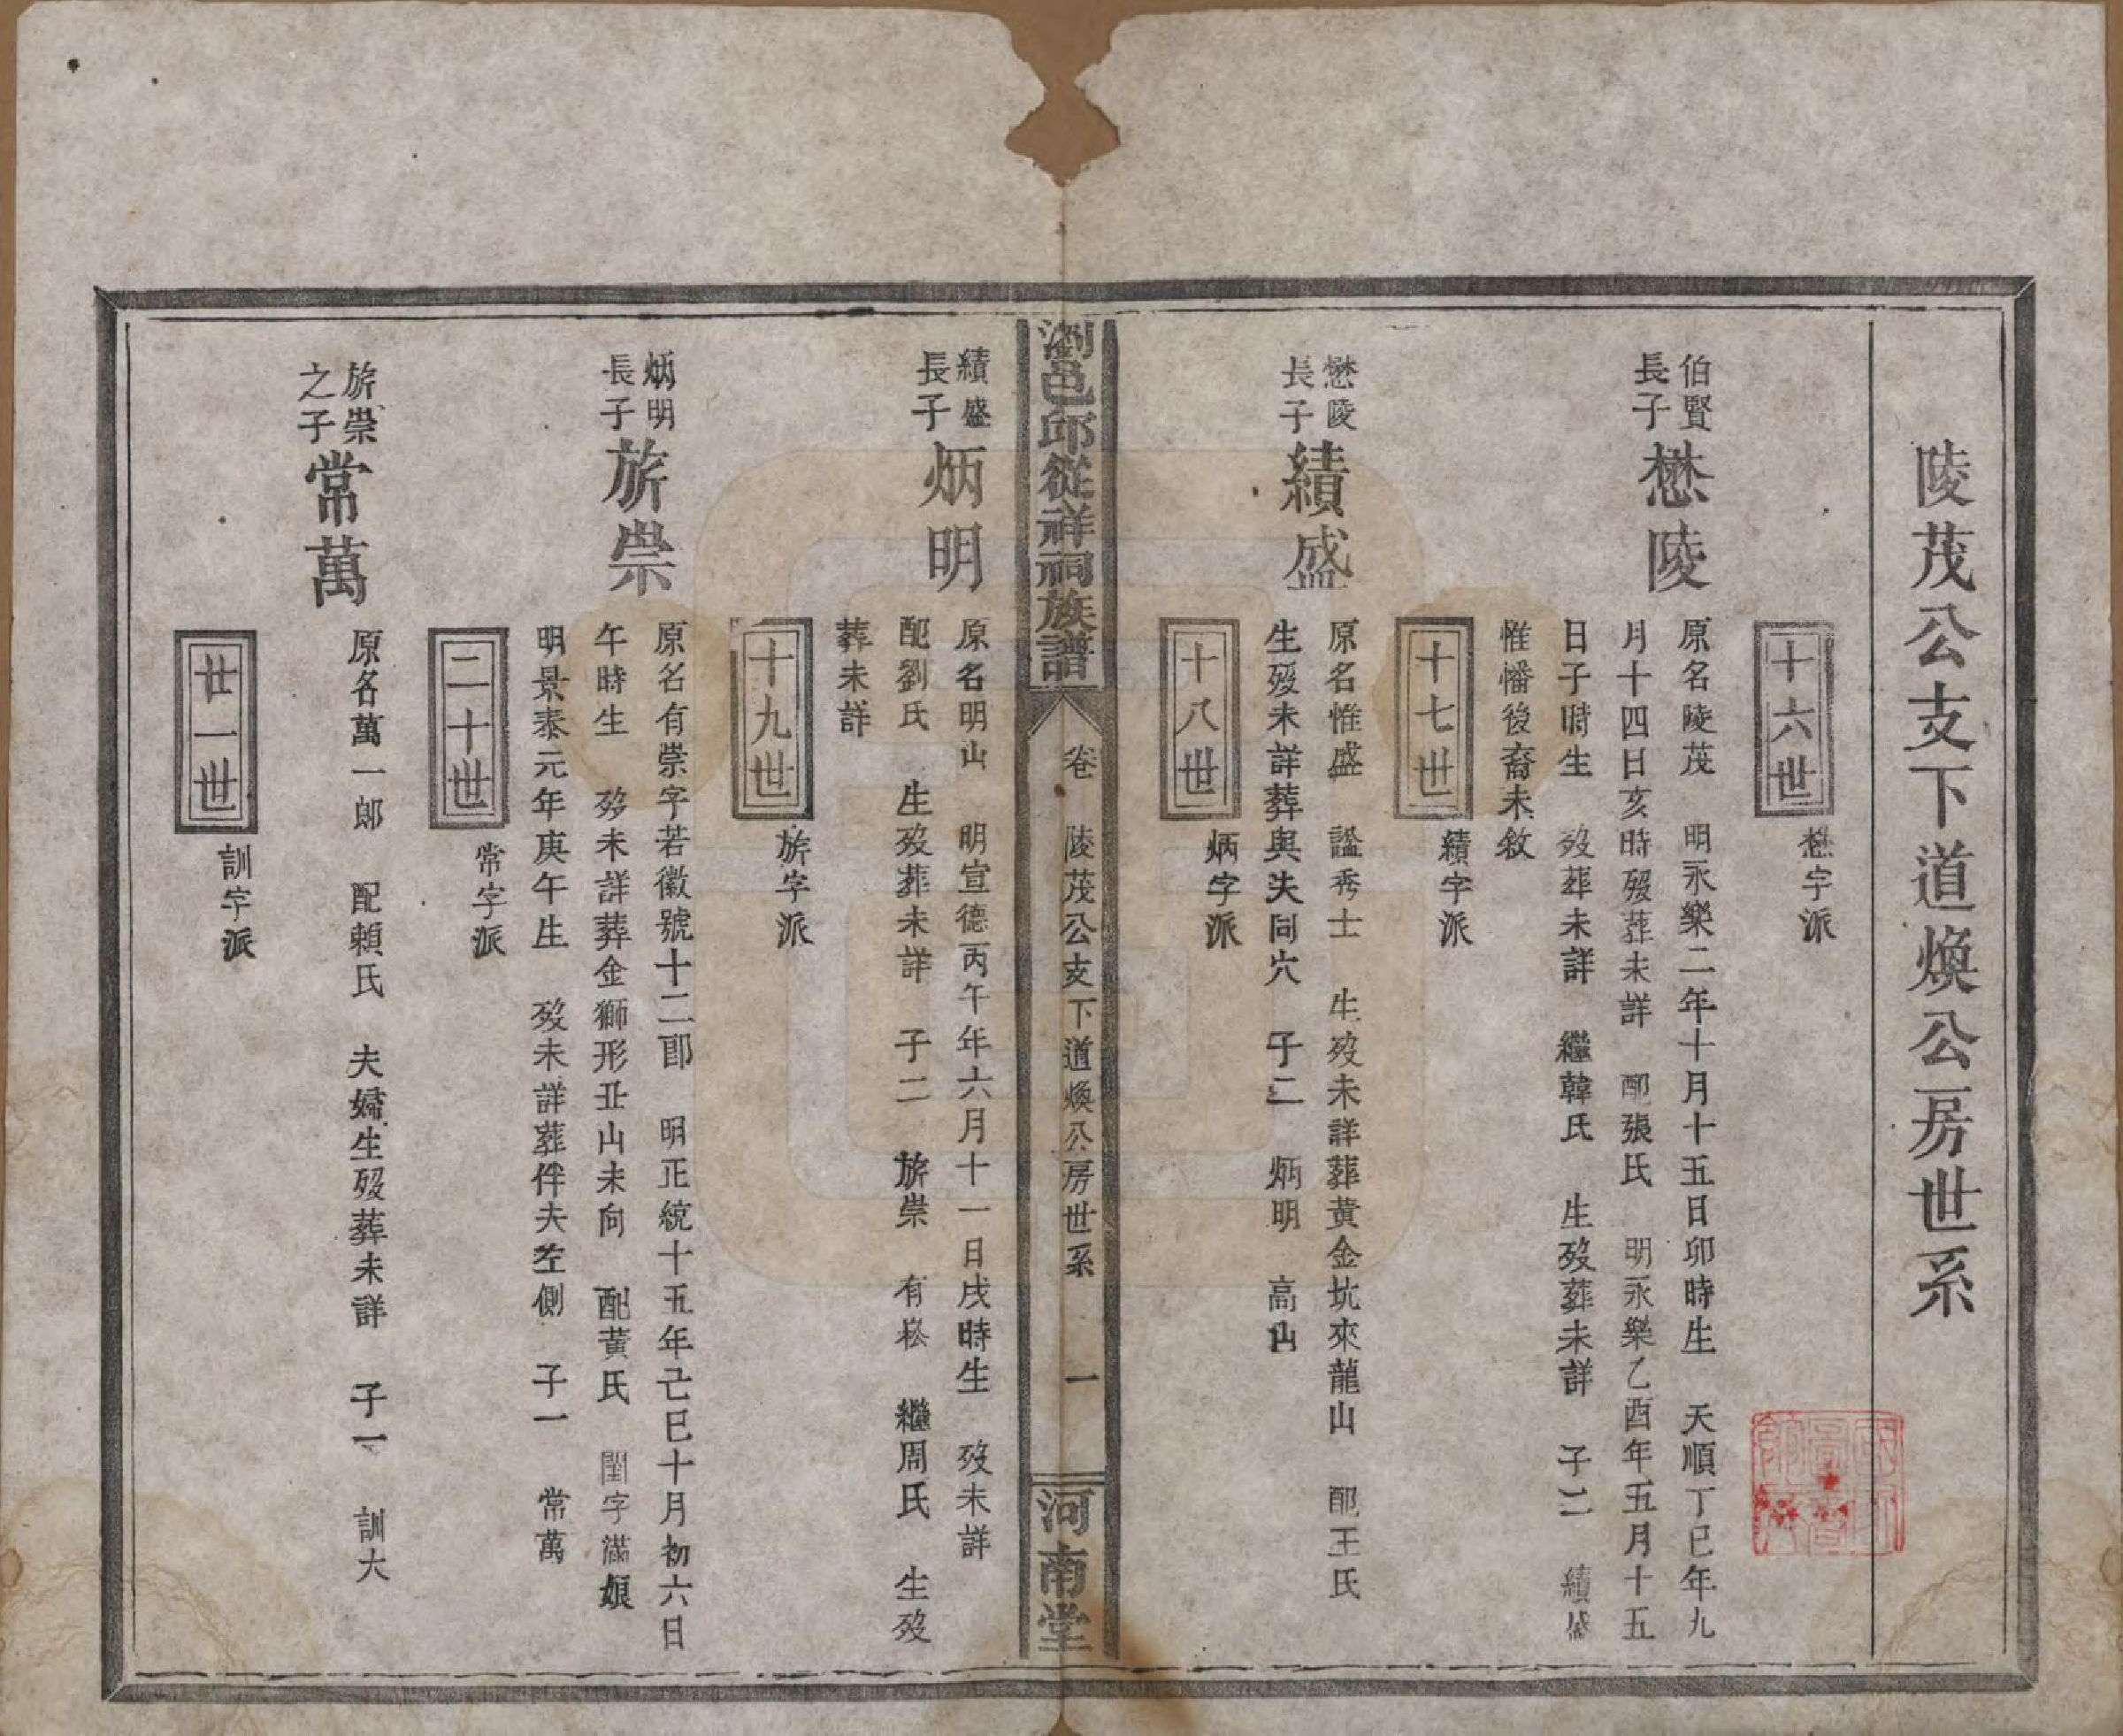 陵茂公支下道煥公房世系
十六世
懋字派
伯賢
長子
懋陵
原名陵茂　明永樂二年十月十五日卯時生　天順丁巳年九
月十四日亥時歿葬未詳　配張氏　明永樂乙酉年五月十五
日子時生　歿葬未詳　繼韓氏　生歿葬未詳　子二　績盛
惟幡後裔未敘
十七世
績字派
懋陵
長子
績盛
原名惟盛　謚秀士　生歿未詳葬黃金坑來龍山　配王氏
生歿未詳葬與夫同穴　子二　炳明　高山
十八世
炳字派
瀏邑邱從祥祠族譜
卷　陵茂公支下道煥公房世系　一
河南堂
績盛
長子
炳明
原名明山　明宣德丙午年六月十一日戌時生　歿未詳
配劉氏　生歿葬未詳　子二　旂崇　有崧　繼周氏　生歿
葬未詳
十九世
旂字派
炳明
長子
旂崇
原名有崇字若徽號十二郎　明正統十五年己巳十月初六日
午時生　歿未詳葬金獅形丑山未向　配黃氏　閨字滿娘
明景泰元年庚午生　歿未詳葬伴夫左側　子一　常萬
二十世
常字派
旂崇
之子
常萬
原名萬一郎　配賴氏　夫婦生歿葬未詳　子一　訓大
廿一世
訓字派